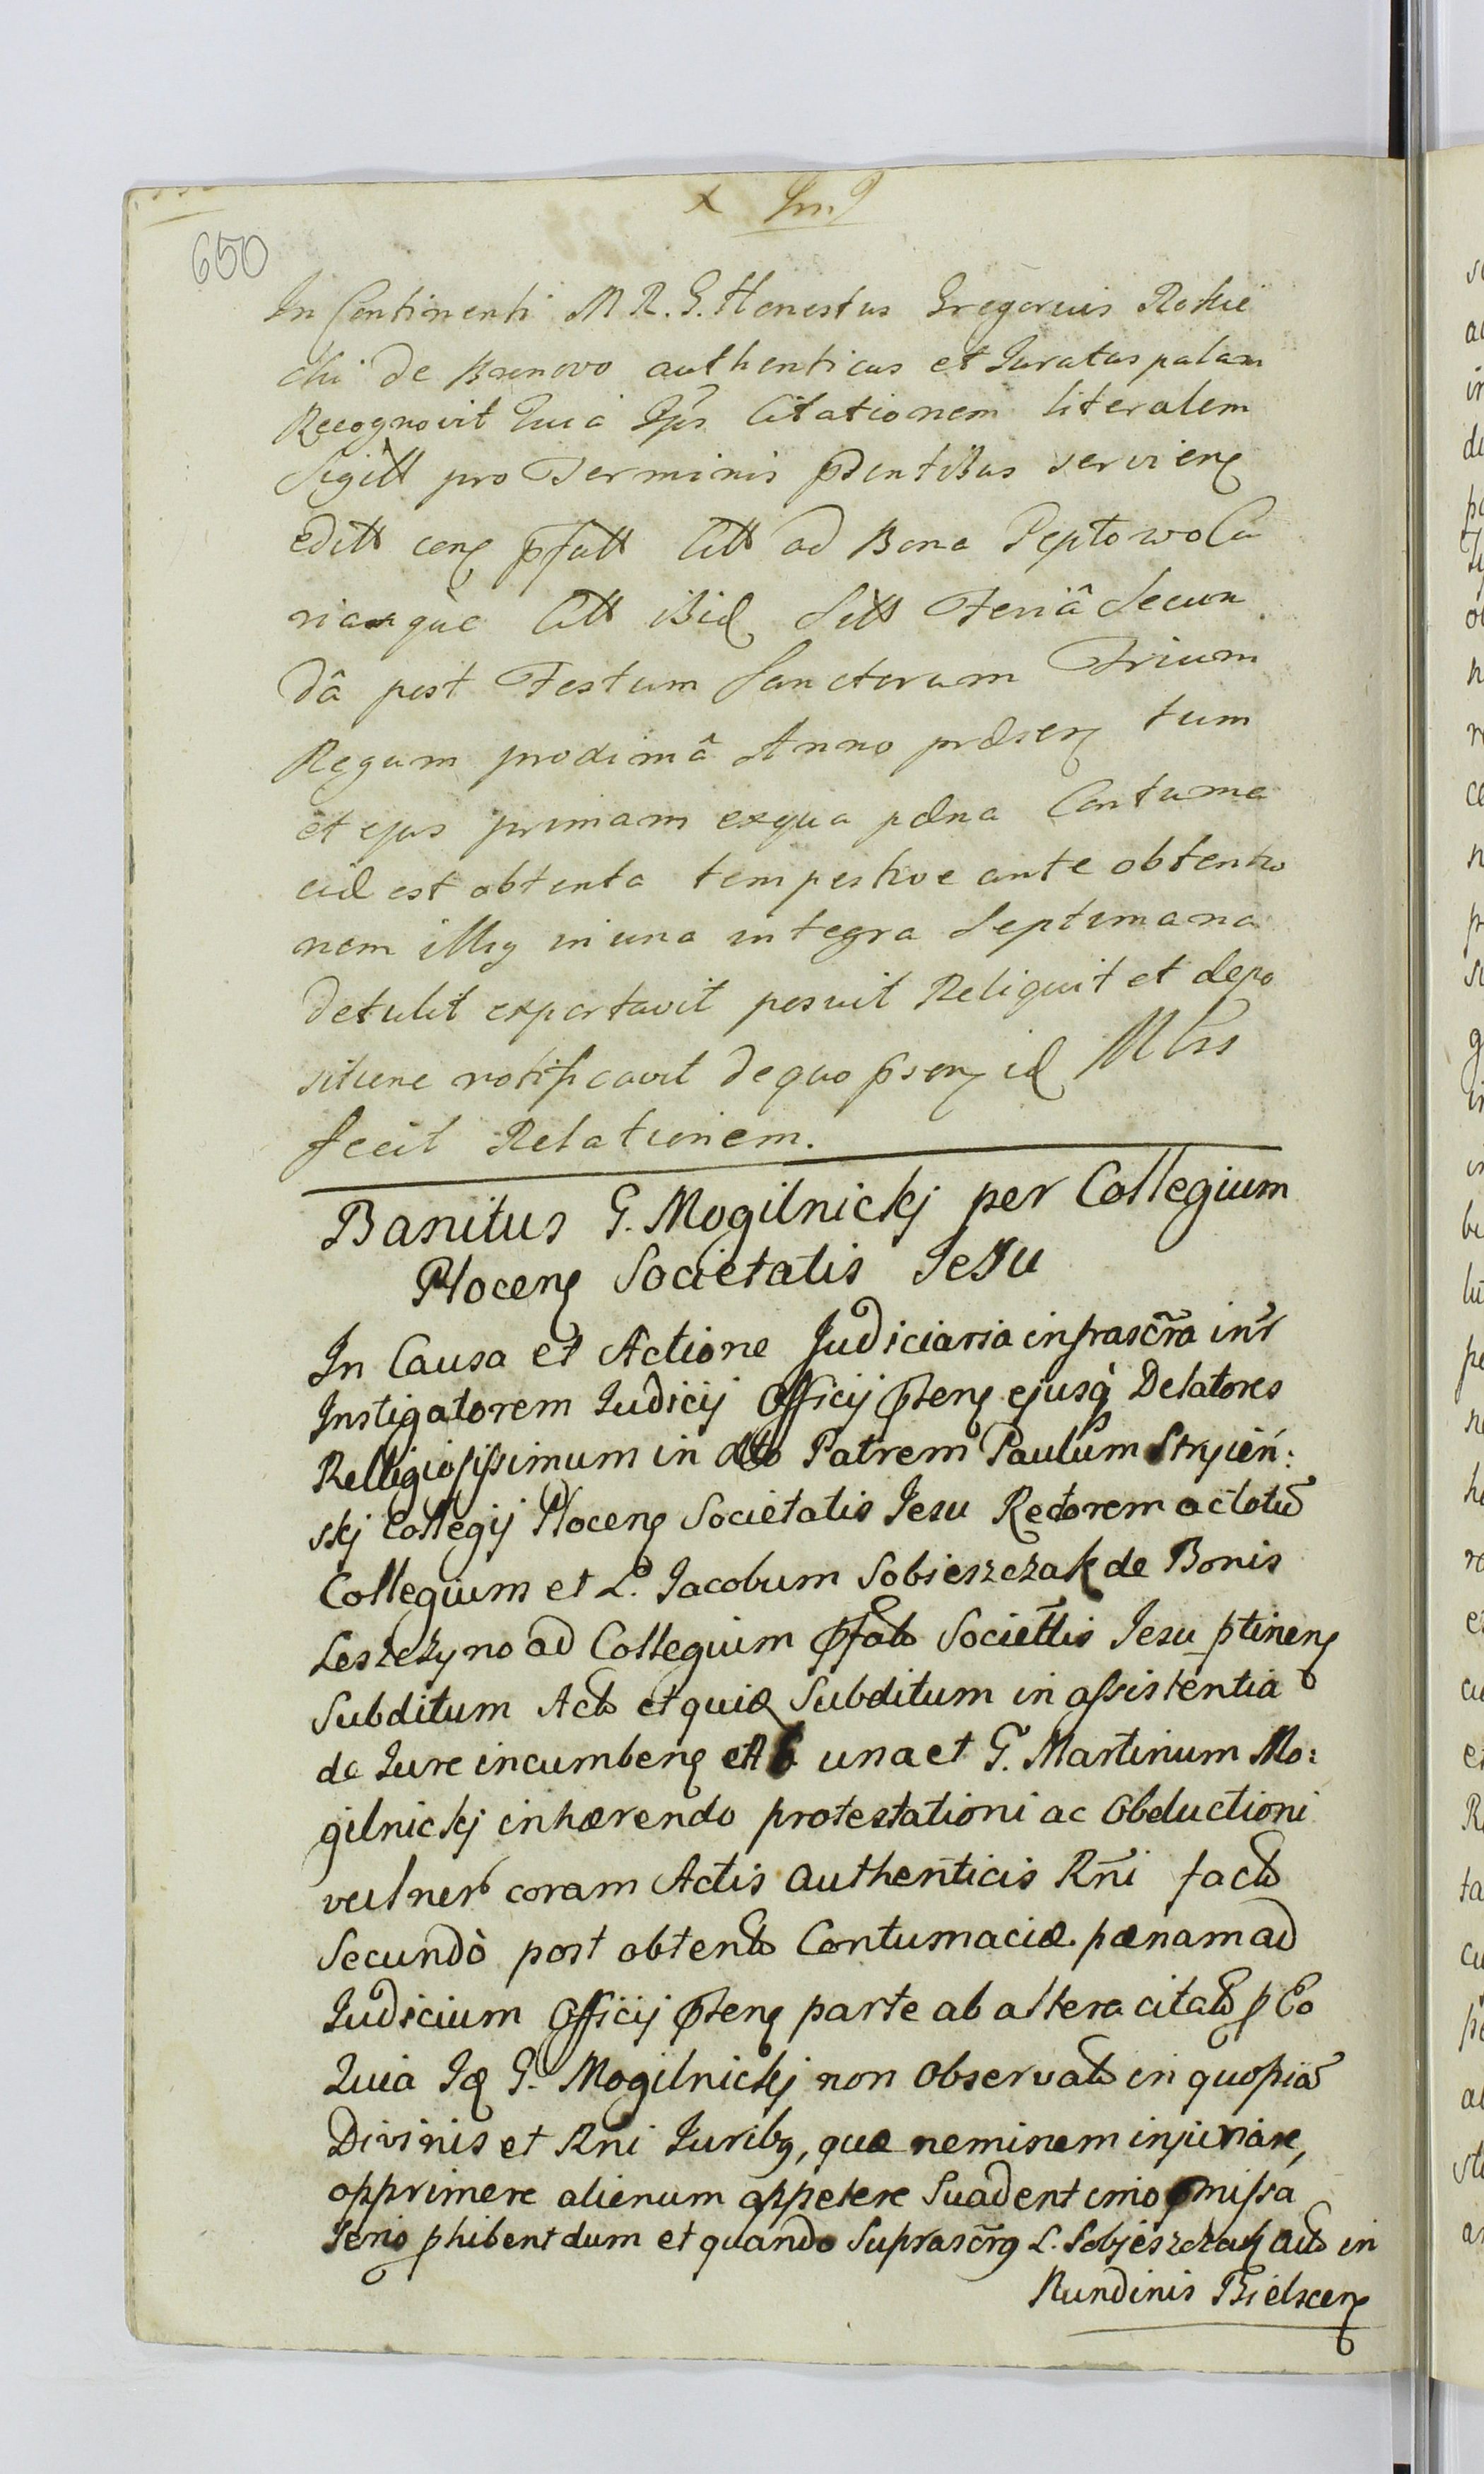 650
In Continenti M R. G. Honestus Gregorius Rokic
chi de Brenovo authenticus et Juratus palam
Recognovit Quia Ips Citationem literalem
Sigill pro Terminis pdentibus serviens
editt cens pfatt Citt ad Bona Peptowo Ca
riamque Citt ibid Sitt Feriâ Secun
dâ post Festum Sanctorum Trium
Regum prodimâ Anno præsen tum
et ejus primam exqua pœna Contuma
ciæ est obtenta tempestive ante obtentio
nem illiq in una integra Septimana
detulit exportavit posuit Reliquit et depo
situne notificavit de quo psens id Mtris
fecit Relationem.
Banitus G. Mogilnickj per Collegium
Plocens Societatis Jesu
In Causa et Actione Judiciaria infrascr̃a int̃r
Instigatorem Judicij Officij Pntens ejusq̃ Delatores
Relligiosissimum in Xto Patrem Paulum Stryień:
skj Collegij Plocens Societatis Jesu Rectorem ac totũ
Collegium et L. Jacobum Sobieszczak de Bonis
Leszczyno ad Collegium Pfatt Societtis Jesu ptinens
Subditum Actt et quiæ Subditum in assistentia
de Jure incumbens una et G. Martinum Mo:
gilnickj inhærendo protestationi ac Obductioni
vulner coram Actis authenticis Rñi fact
Secundò post obtent Contumaciæ pænam ad
Judicium Officij Pntens parte ab altera citatt p Eo
Quia Iq G. Mogilnickj non observatt in quopiã
Divinis et Rni Juribq, quæ neminem injuriare,
opprimere alienum appetere Suadent imo omissa
Serio phibent dum et quando Suprascr̃q L. Sobjeszczak actt in
Nundinis Bielscens